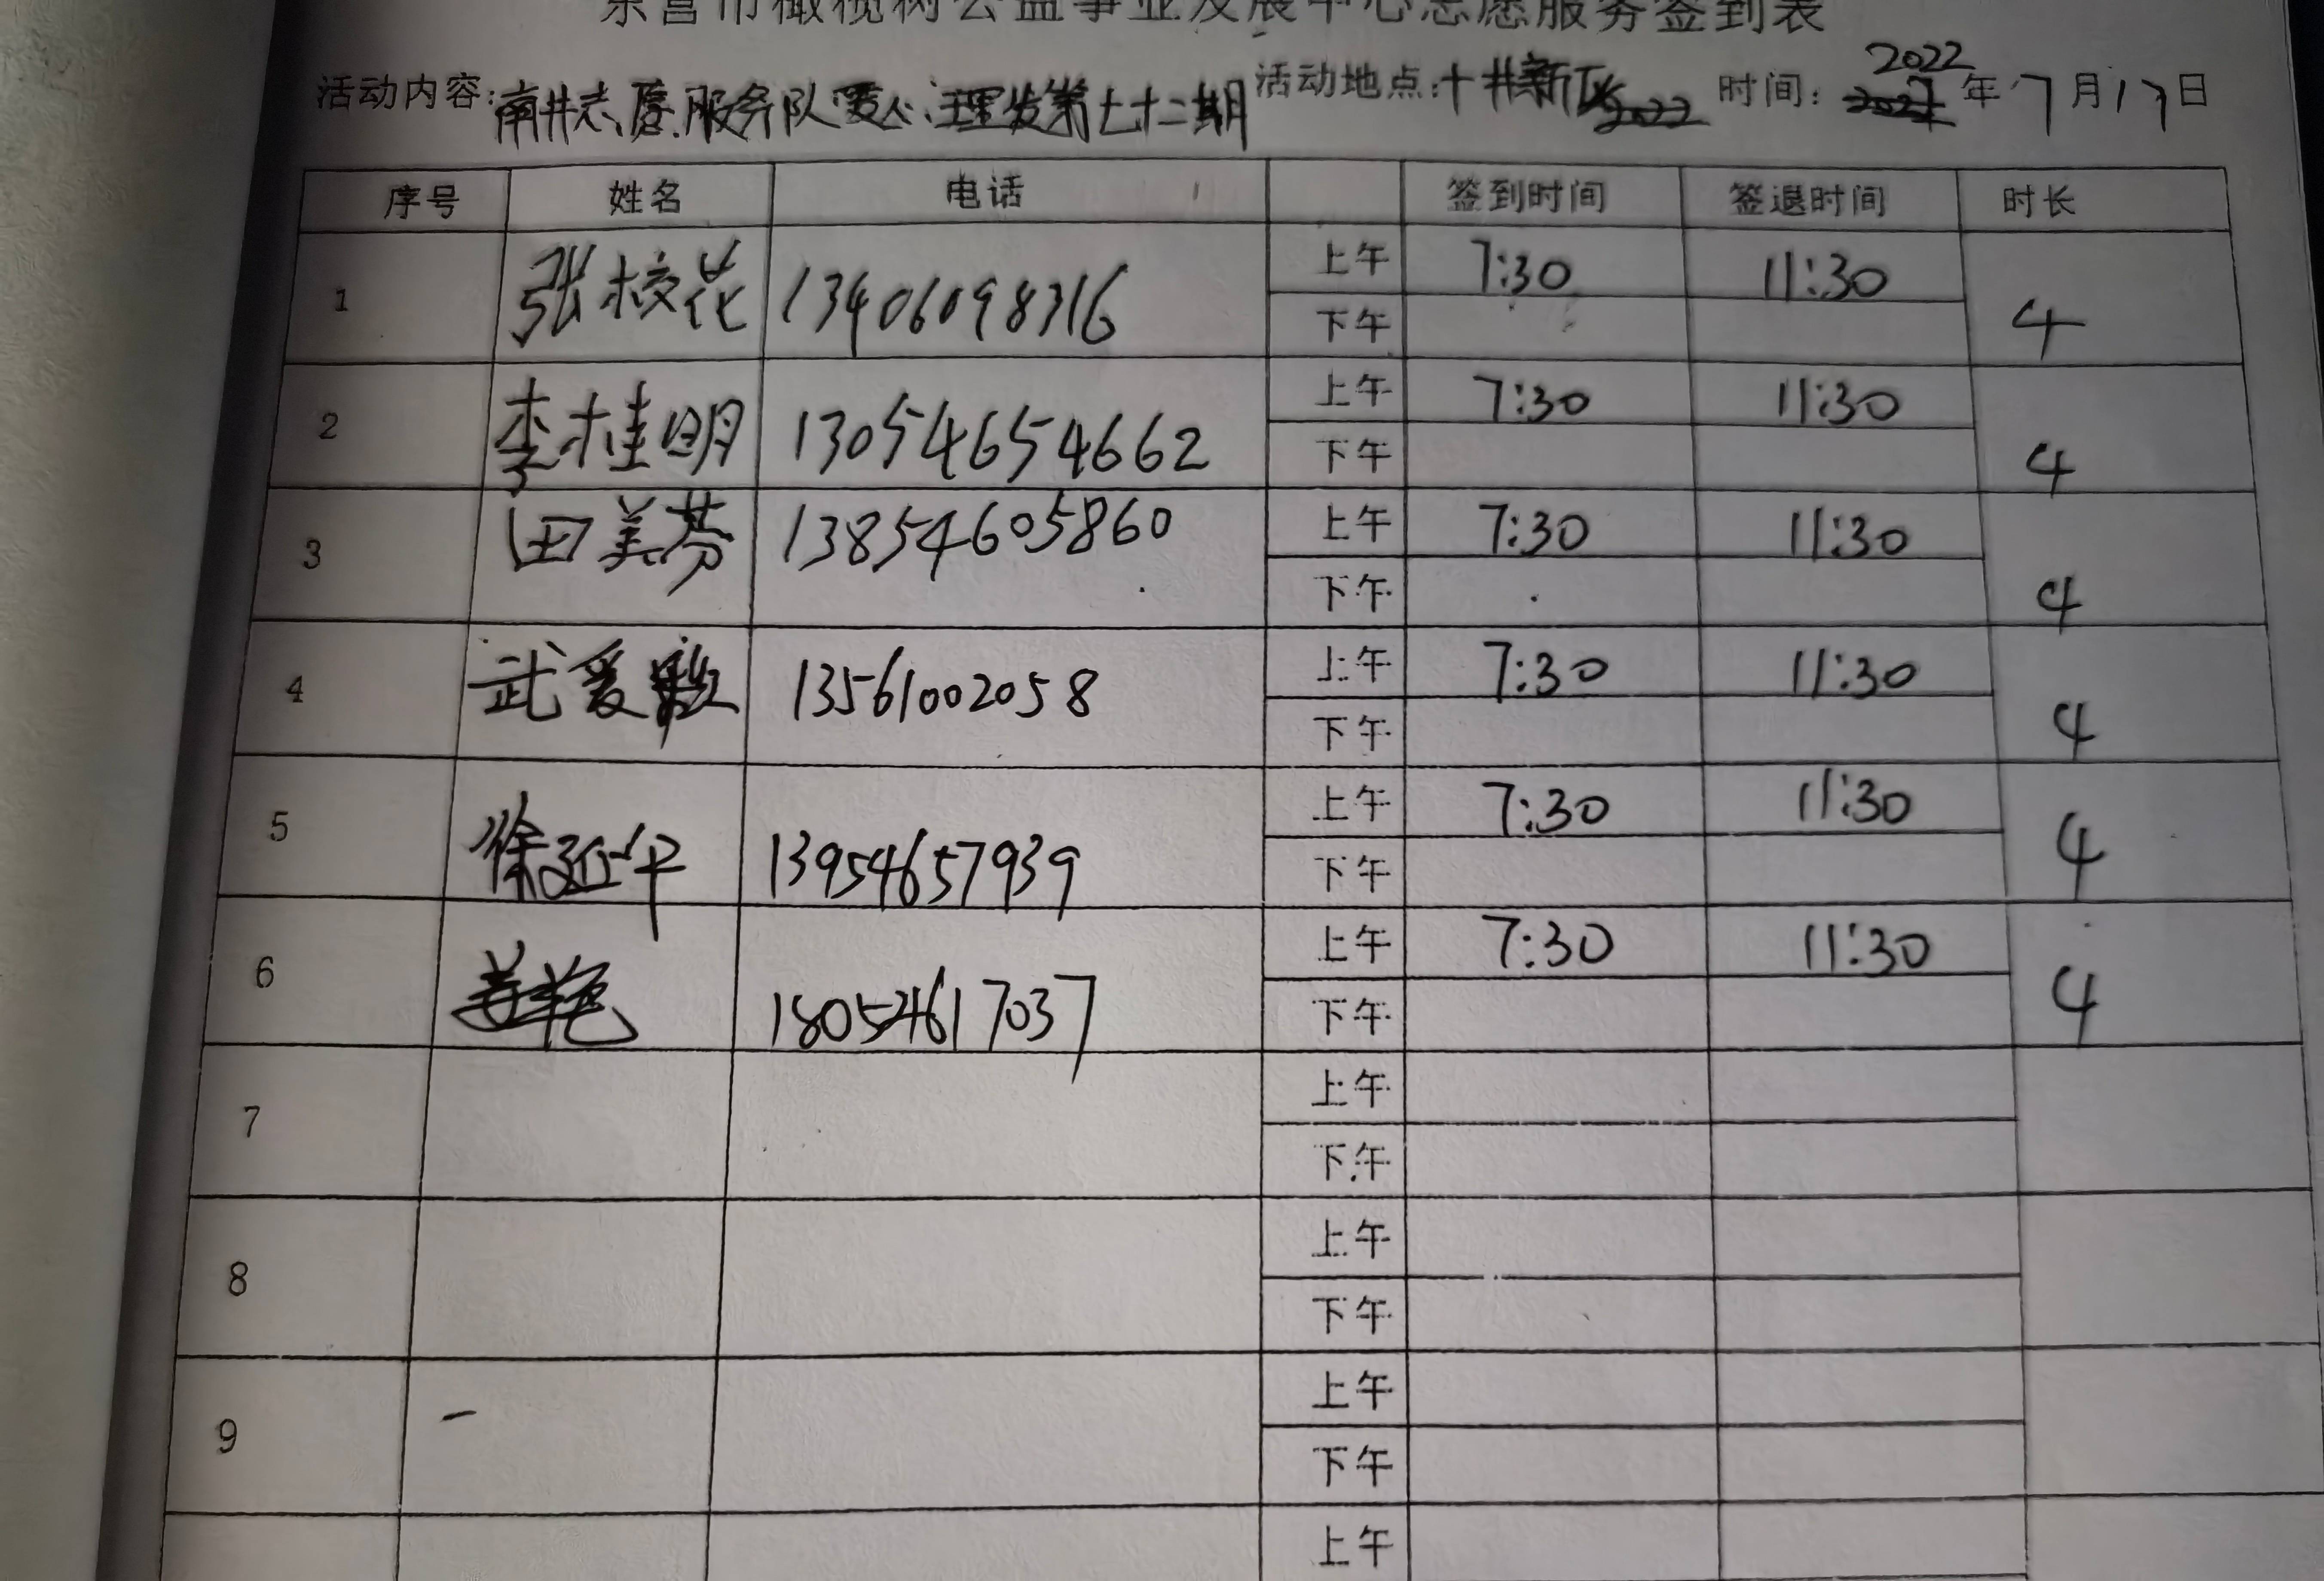 东营市橄榄树公益事业发展中心志愿服务签到表
活动内容:南井志愿服务队爱心理发第七十二期 活动地点:十井新区 时间: 2022年7月17日
序号 姓名 电话 签到时间 签退时间 时长
1 张校花 13406098316 上午 7:30 11:30 4
下午
2 李桂明 13054654662 上午 7:30 11:30 4
下午
3 田美芬 13854605860 上午 7:30 11:30 4
下午
4 武爱 13561002058 上午 7:30 11:30 4
下午
5 徐延华 13954657939 上午 7:30 11:30 4
下午
6 姜艳 18054617037 上午 7:30 11:30 4
下午
7 上午
下午
8 上午
下午
9 上午
下午
上午